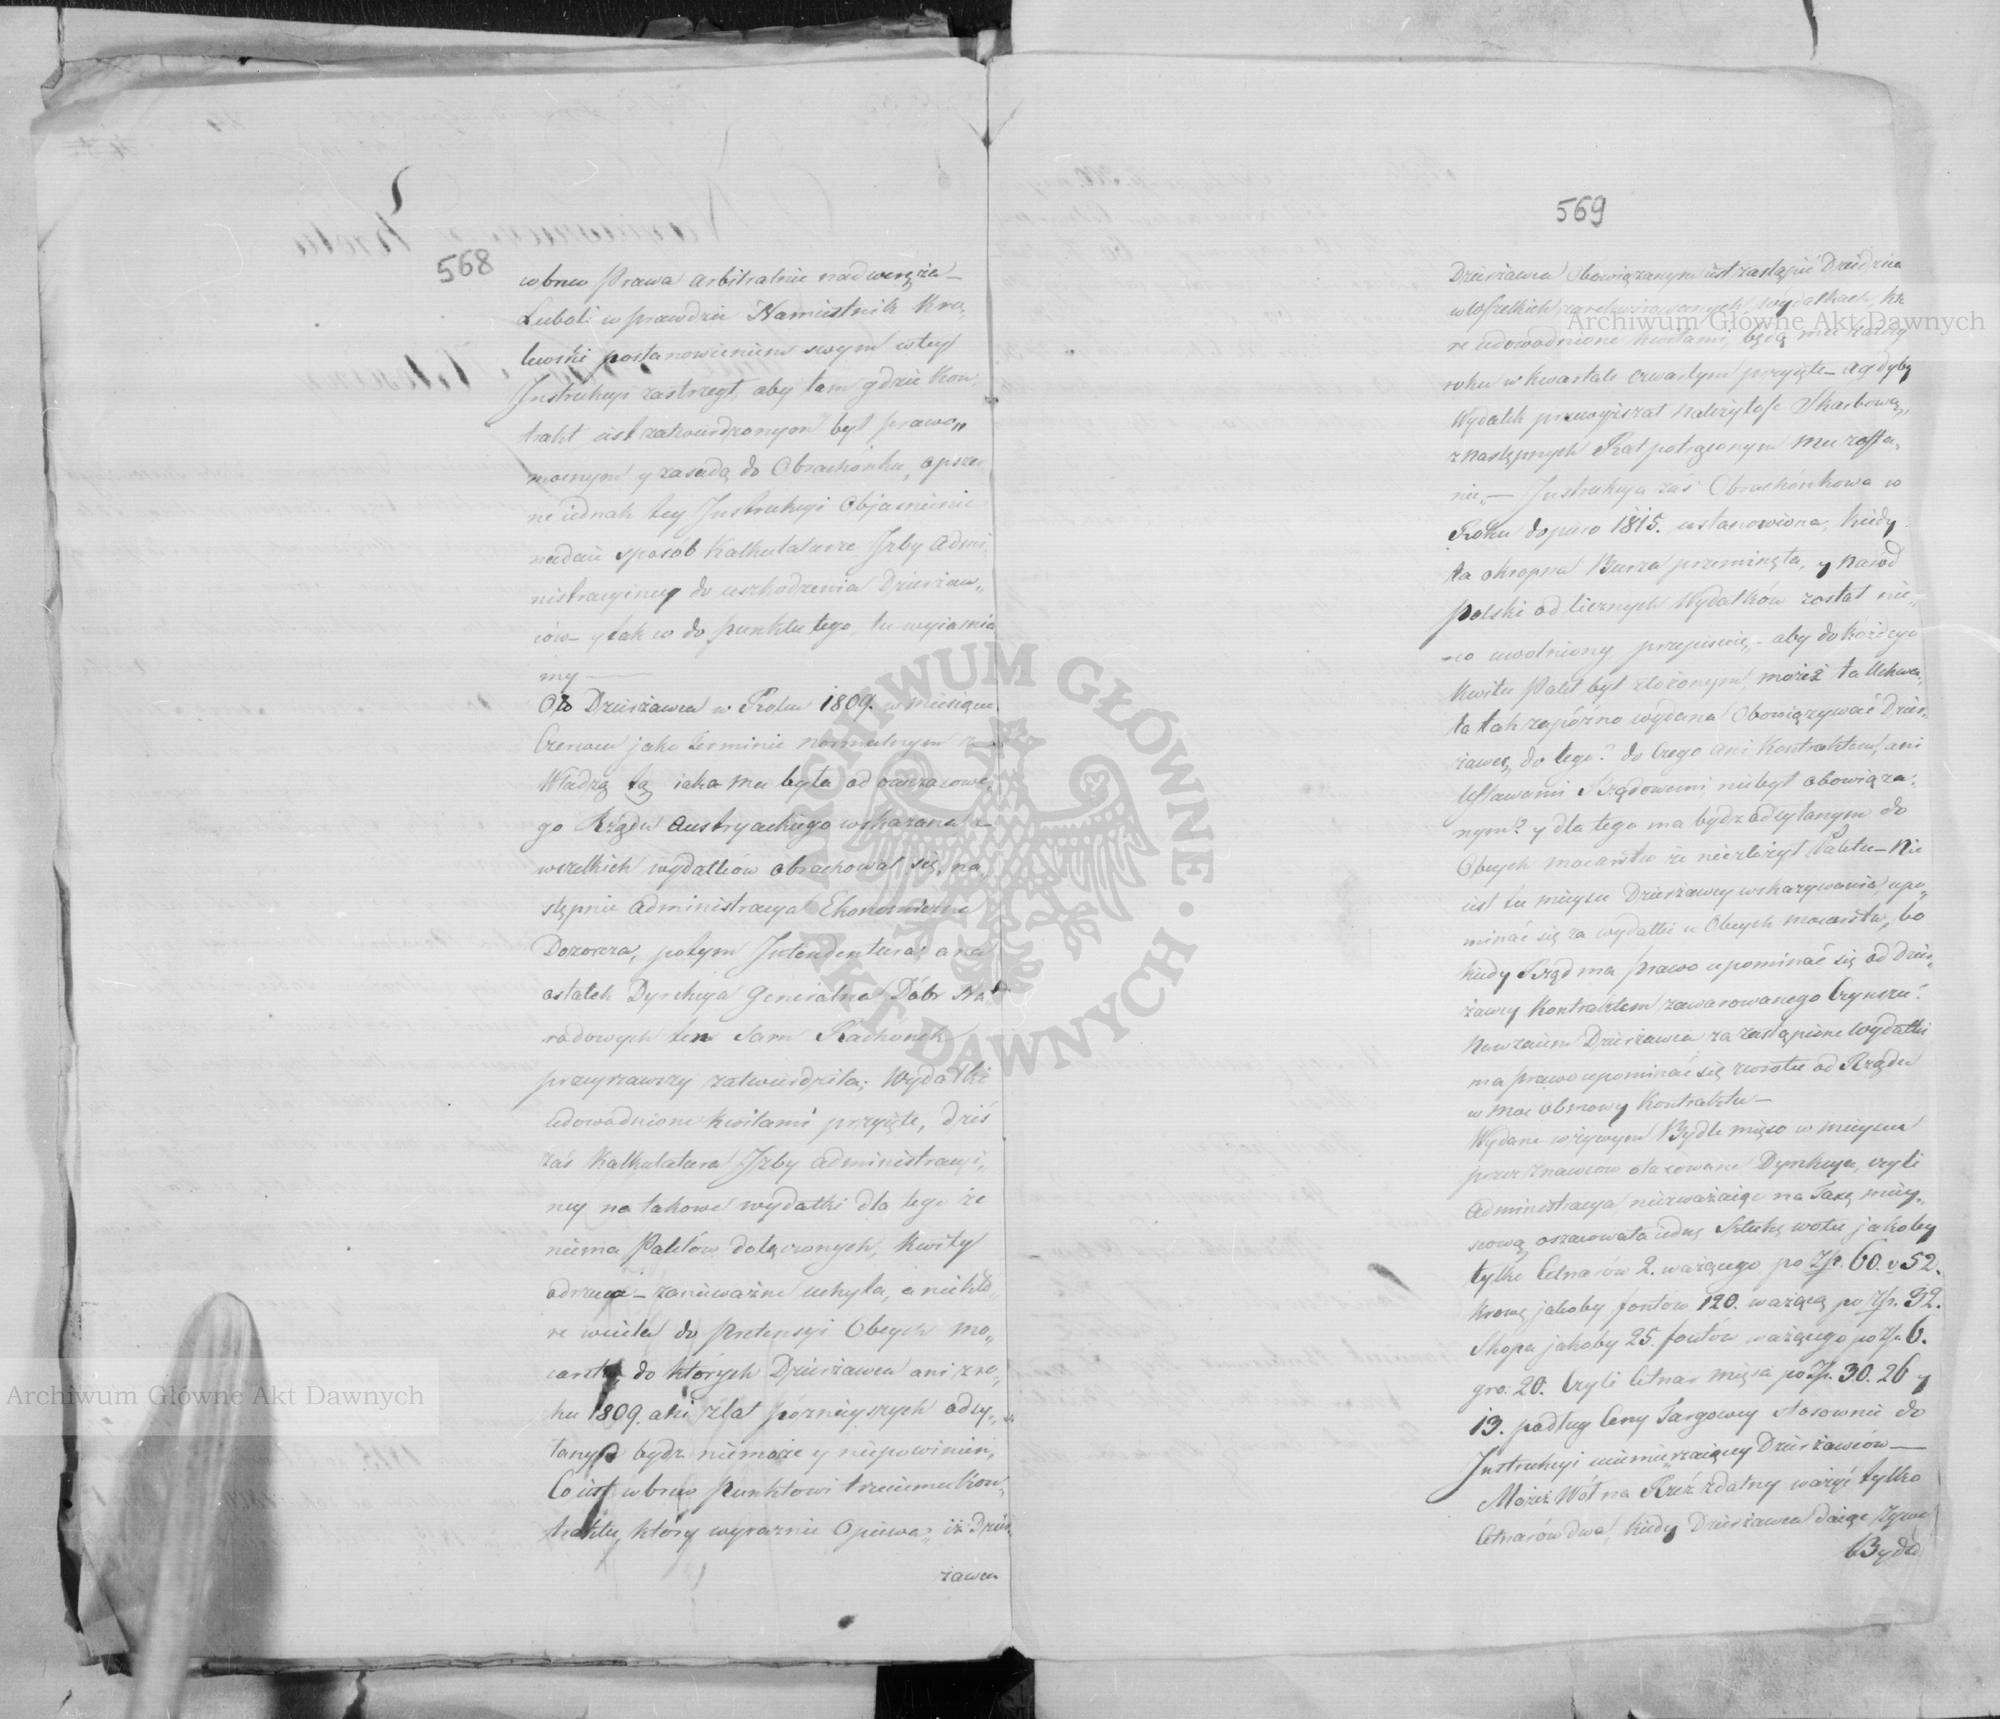 568
wbrew Prawa arbitralnie nadweręża_
Luboli wprawdzie Namiestnik Kró„
lewski postanowieniem swym wtey
Instrukcyi zastrzegł, aby tam gdzie Kon„
trakt iest zatwierdzonym był prawo„
mocnym y zasadą do Obrachónku,
ne iednak tey Instrukcyi Objasnienie
nadaie sposób Kalkulaturze Izby Admi„
nistracyiney do uszkodzenia Dzierżaw„
ców_ y tak co do punktu tego, tu wyiasnia
my_
Oto Dzierżawca w Roku 1809. w miesiącu
Czerwcu jako terminie normalnym z_
Władzą tą iaka mu była od owczasowe„
go Rządu Austryackiego wskazana z_
wszelkich wydatków obrachował się, na„
stępnie Administracya Ekonomiczna
Dozorcza, potym Intendentura, a na
ostatek Dyrekcya Generalna Dóbr Na„
rodowych ten sam Rachonek
przeyrzawszy zatwierdziła; Wydatki
udowodnione kwitami przyięte, dziś
zaś Kalkulatura Izby Administracyi„
ney na takowe wydatki dla tego że
niema Paletów dołączonych, kwity
odrzuca_ zanieważne uchyla, a niektó„
re wciela do Pretensyi Obcych mo„
carstw, do których Dzierżawca ani z ro„
ku 1809. ani z lat pózniéyszych odsy„
łanym bydz niemoże y niepowinien,
Co iest wbrew Punktowi trzeciemu Kon„
traktu, który wyraznie Opiewa„ iż Dzier„
zawca
569
Dzierżawca Obowiązanym iest zastąpić Dziedzica
w Wszelkich zarekwirowanych wydatkach, któ
re udowodnione kwitami, będą mu każdego
roku w kwartale czwartym przyięte_ a gdyby
Wydatek przewyższał należytość Skarbową,
z następnych Rat potrąconym mu zosta„
nie,_ Instrukcya zaś Obrachónkowa w
Roku dopiero 1815. ustanowiona, kiedy
ta okropna Burza przeminęła, y Naród
Polski od licznych Wydatków został nie„
co uwolniony, przepisuie,_ aby do każdego
Kwitu Palet był złożonym, możeż ta Uchwa„
ła tak zapóźno wydana Obowiązywać Dzier„
żawcę do tego? do czego ani Kontraktem, ani
Ustawami Rządowemi niebył obowiąza„
nym? y dla tego ma bydz odsyłanym do
Obcych mocarstw że niezłożył Paletu_ Nie
iest tu mieysce Dzierżawcy wskazywania, upo„
minać się za wydatki u Obcych mocarstw, bo
kiedy Rząd ma prawo upominać się od Dzier„
żawcy Kontraktem zawarowanego Czynszu!
Nawzaiem Dzierżawca za zastąpione Wydatki
ma prawo upominać się zwrotu od Rządu
w Moc Obmowy Kontraktu_
Wydane w żywym Bydle mięso w mieyscu
przez znawców otaxowane Dyrekcya, czyli
Administracya, niezważaiąc na Taxę miey„
scową oszacowała iedną Sztukę wołu jakoby
tylko Cetnarów 2. ważącego po Zp. 60. v 52.
Krowę jakoby fontów 120. ważącą po Zp. 32.
Skopa jakoby 25. fontów ważącego po Zp. 6.
gro: 20. Czyli Cetnar mięsa po Zp. 30. 26 y
13. podług Ceny Targowey stosownie do
Instrukcyi Dzierżawców_
Możeż Wół na Rzéź zdatny ważyć tylko
Cetnarów dwa, kiedy Dzierżawca daiąc żywe
Bydło
Archiwum Główne Akt Dawnych
Archiwum Główne Akt Dawnych
ARCHIWUM GŁÓWNE · AKT DAWNYCH ·